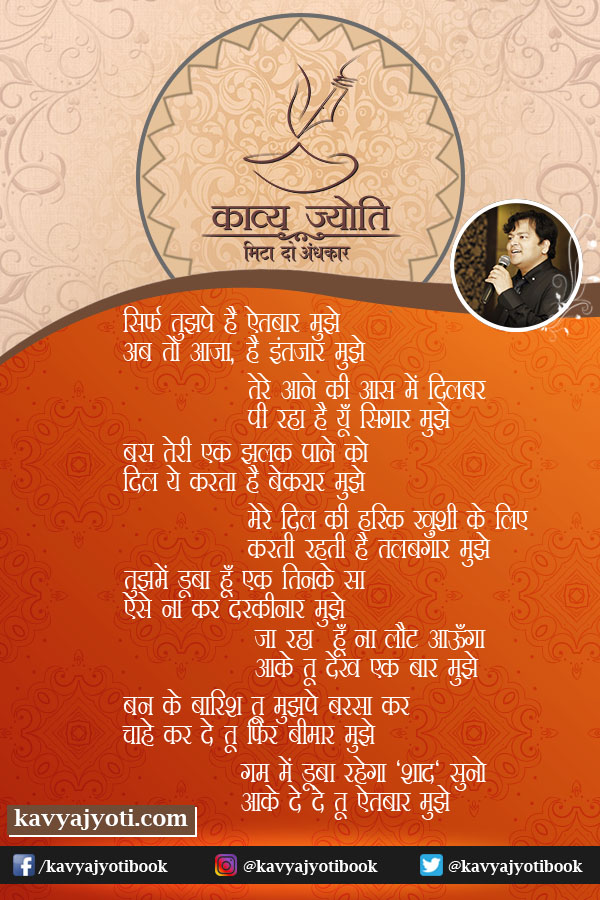 काव्य ज्योति
मिटा दो अंधकार
सिर्फ तुझपे है ऐतबार मुझे
अब तो आजा, है इंतजार मुझे
तेरे आने की आस में दिलबर
पी रहा है यूँ सिगार मुझे
बस तेरी एक झलक पाने को
दिल ये करता है बेकरार मुझे
मेरे दिल की हरिक खुशी के लिए
करती रहती है तलबगार मुझे
तुझमें डूबा हूँ एक तिनके सा
ऐसे ना कर दरकीनार मुझे
जा रहा हूँ ना लौट आऊँगा
आके तू देख एक बार मुझे
बन के बारिश तू मुझपे बरसा कर
चाहे कर दे तू फिर बीमार मुझे
गम में डूबा रहेगा ‘शाद‘ सुनो
आके दे दे तू ऐतबार मुझे
kavyajyoti.com
/kavyajyotibook @kavyajyotibook @kavyajyotibook